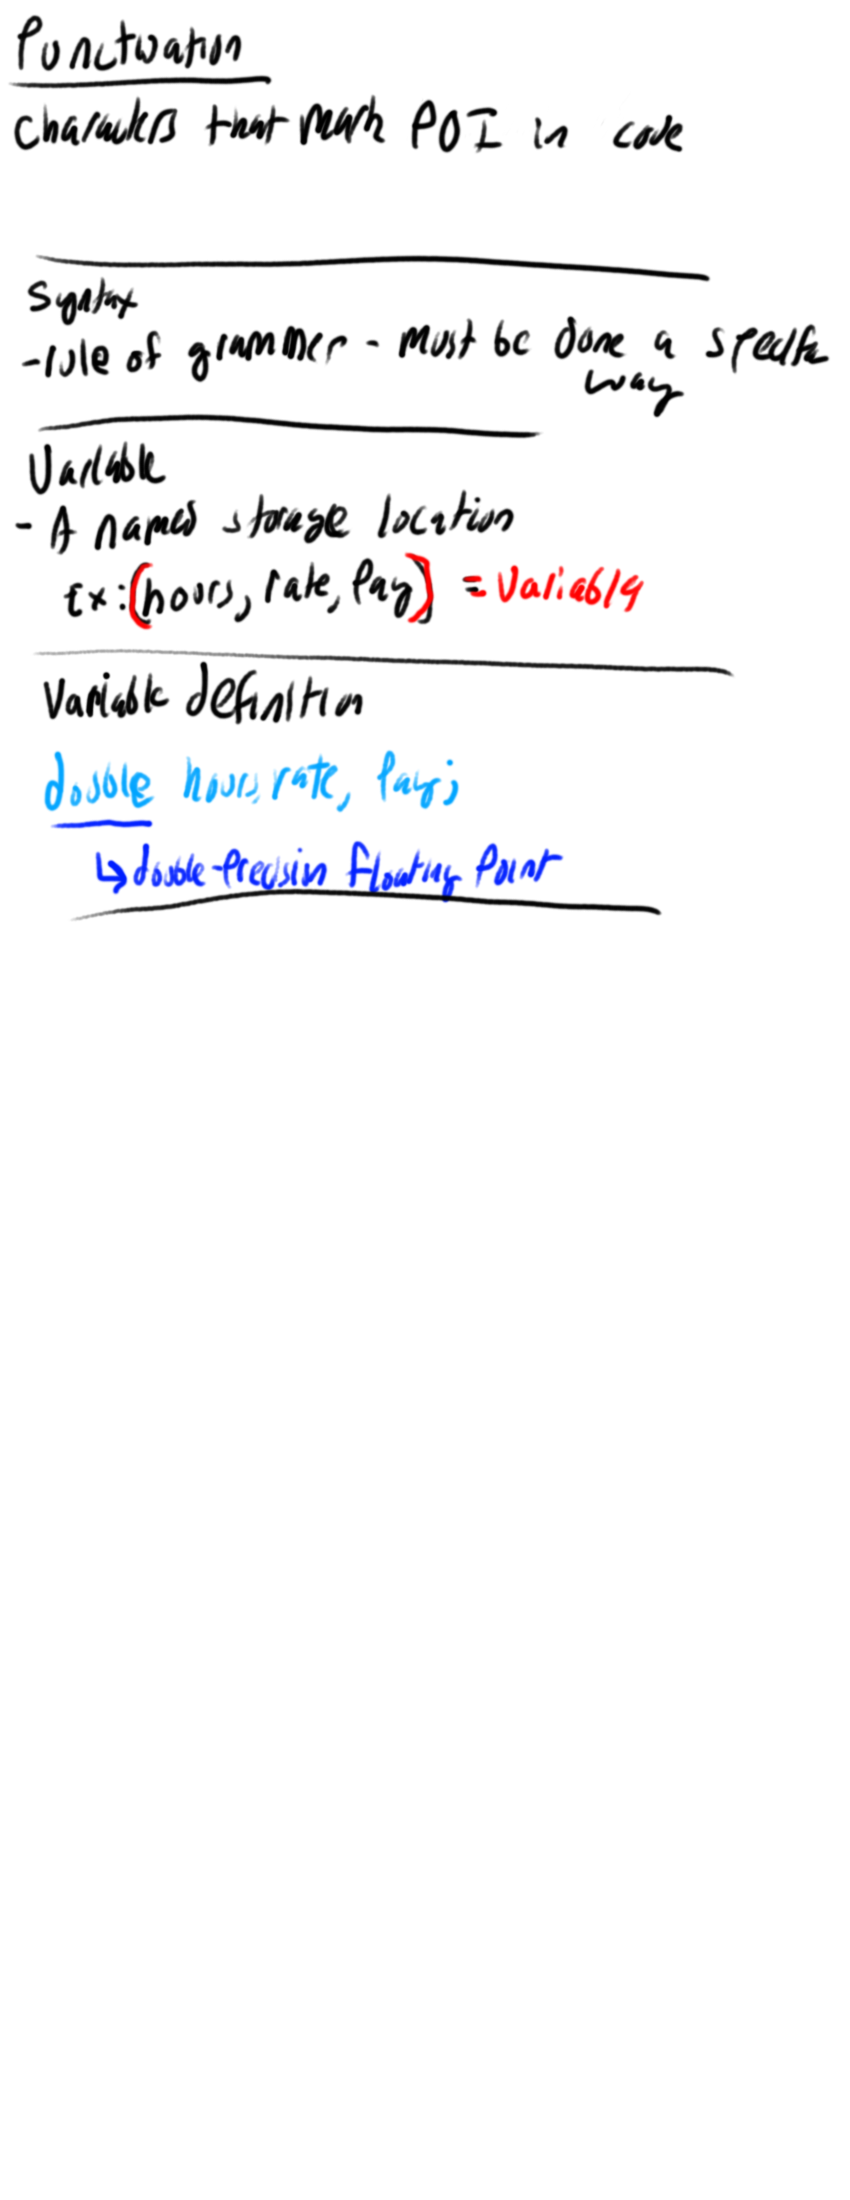 Punctuation
characters that mark POI in code
Syntax
-rule of grammer - must be done a specific
way
Variable
- A named storage location
Ex: (hours, rate, Pay) = Variably
Variable definition
double hours, rate, Pay;
↳ double-Precision floating Point